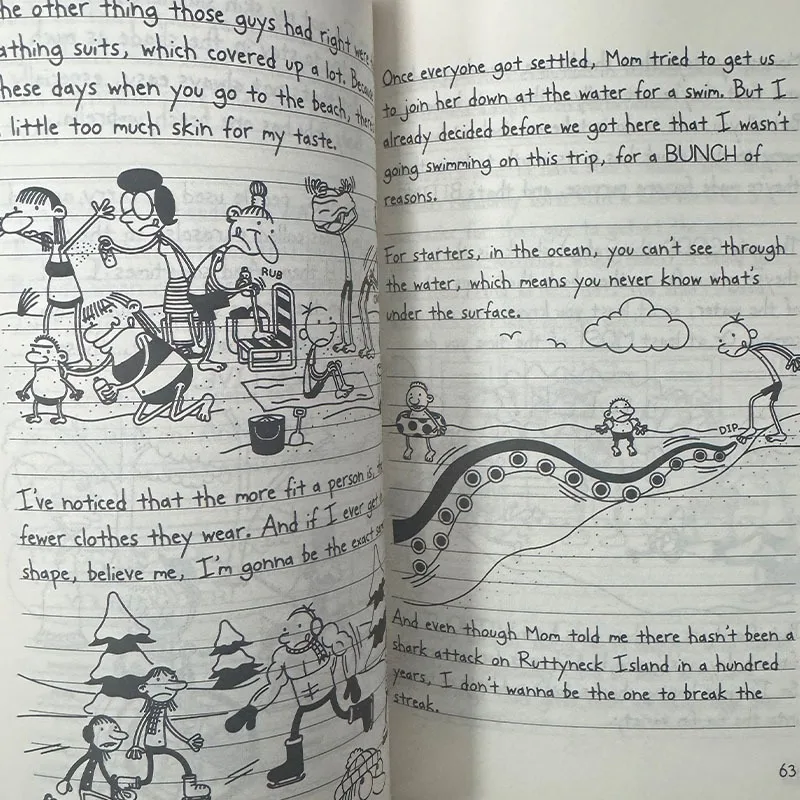 he other thing those guys had right were
athing suits, which covered up a lot.
hese days when you go to the beach,
little too much skin for my taste.
RUB
I've noticed that the more fit a person is,
fewer clothes they wear. And if I ever get
shape, believe me, I'm gonna be the exact
Once everyone got settled, Mom tried to get us
to join her down at the water for a swim. But I
already decided before we got here that I wasn't
going swimming on this trip, for a BUNCH of
reasons.
For starters, in the ocean, you can't see through
the water, which means you never know what's
under the surface.
DIP
And even though Mom told me there hasn't been a
shark attack on Ruttyneck Island in a hundred
years, I don't wanna be the one to break the
streak.
63